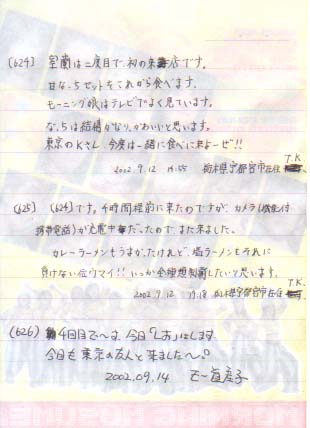 (624) 室蘭は二度目で、初の来店です。
甘なっちセットをこれから食べます。
モーニング娘はテレビでよく見ています。
なっちは結構かなり、かわいいと思います。
東京のKさん、今度は一緒に食べに来よーぜ!!
2002.9.12 14:55 栃木県宇都宮市在住 T.K
(625) (624)です。4時間程前に来たのですが、カメラ(機能付
携帯電話)が充電中だったので、また来ました。
カレーラーメンもうまかったけれど、塩ラーメンもそれに
負けない位ウマイ!!いつか全種類制覇したいと思います。
2002.9.12 19:18 栃木県宇都宮市在住 T.K
(626) 4回目で〜す。今日「しお」にします。
今日も東京の友人と来ましたへ。
2002.09.14 モー盲産子
MORNING MUSUME